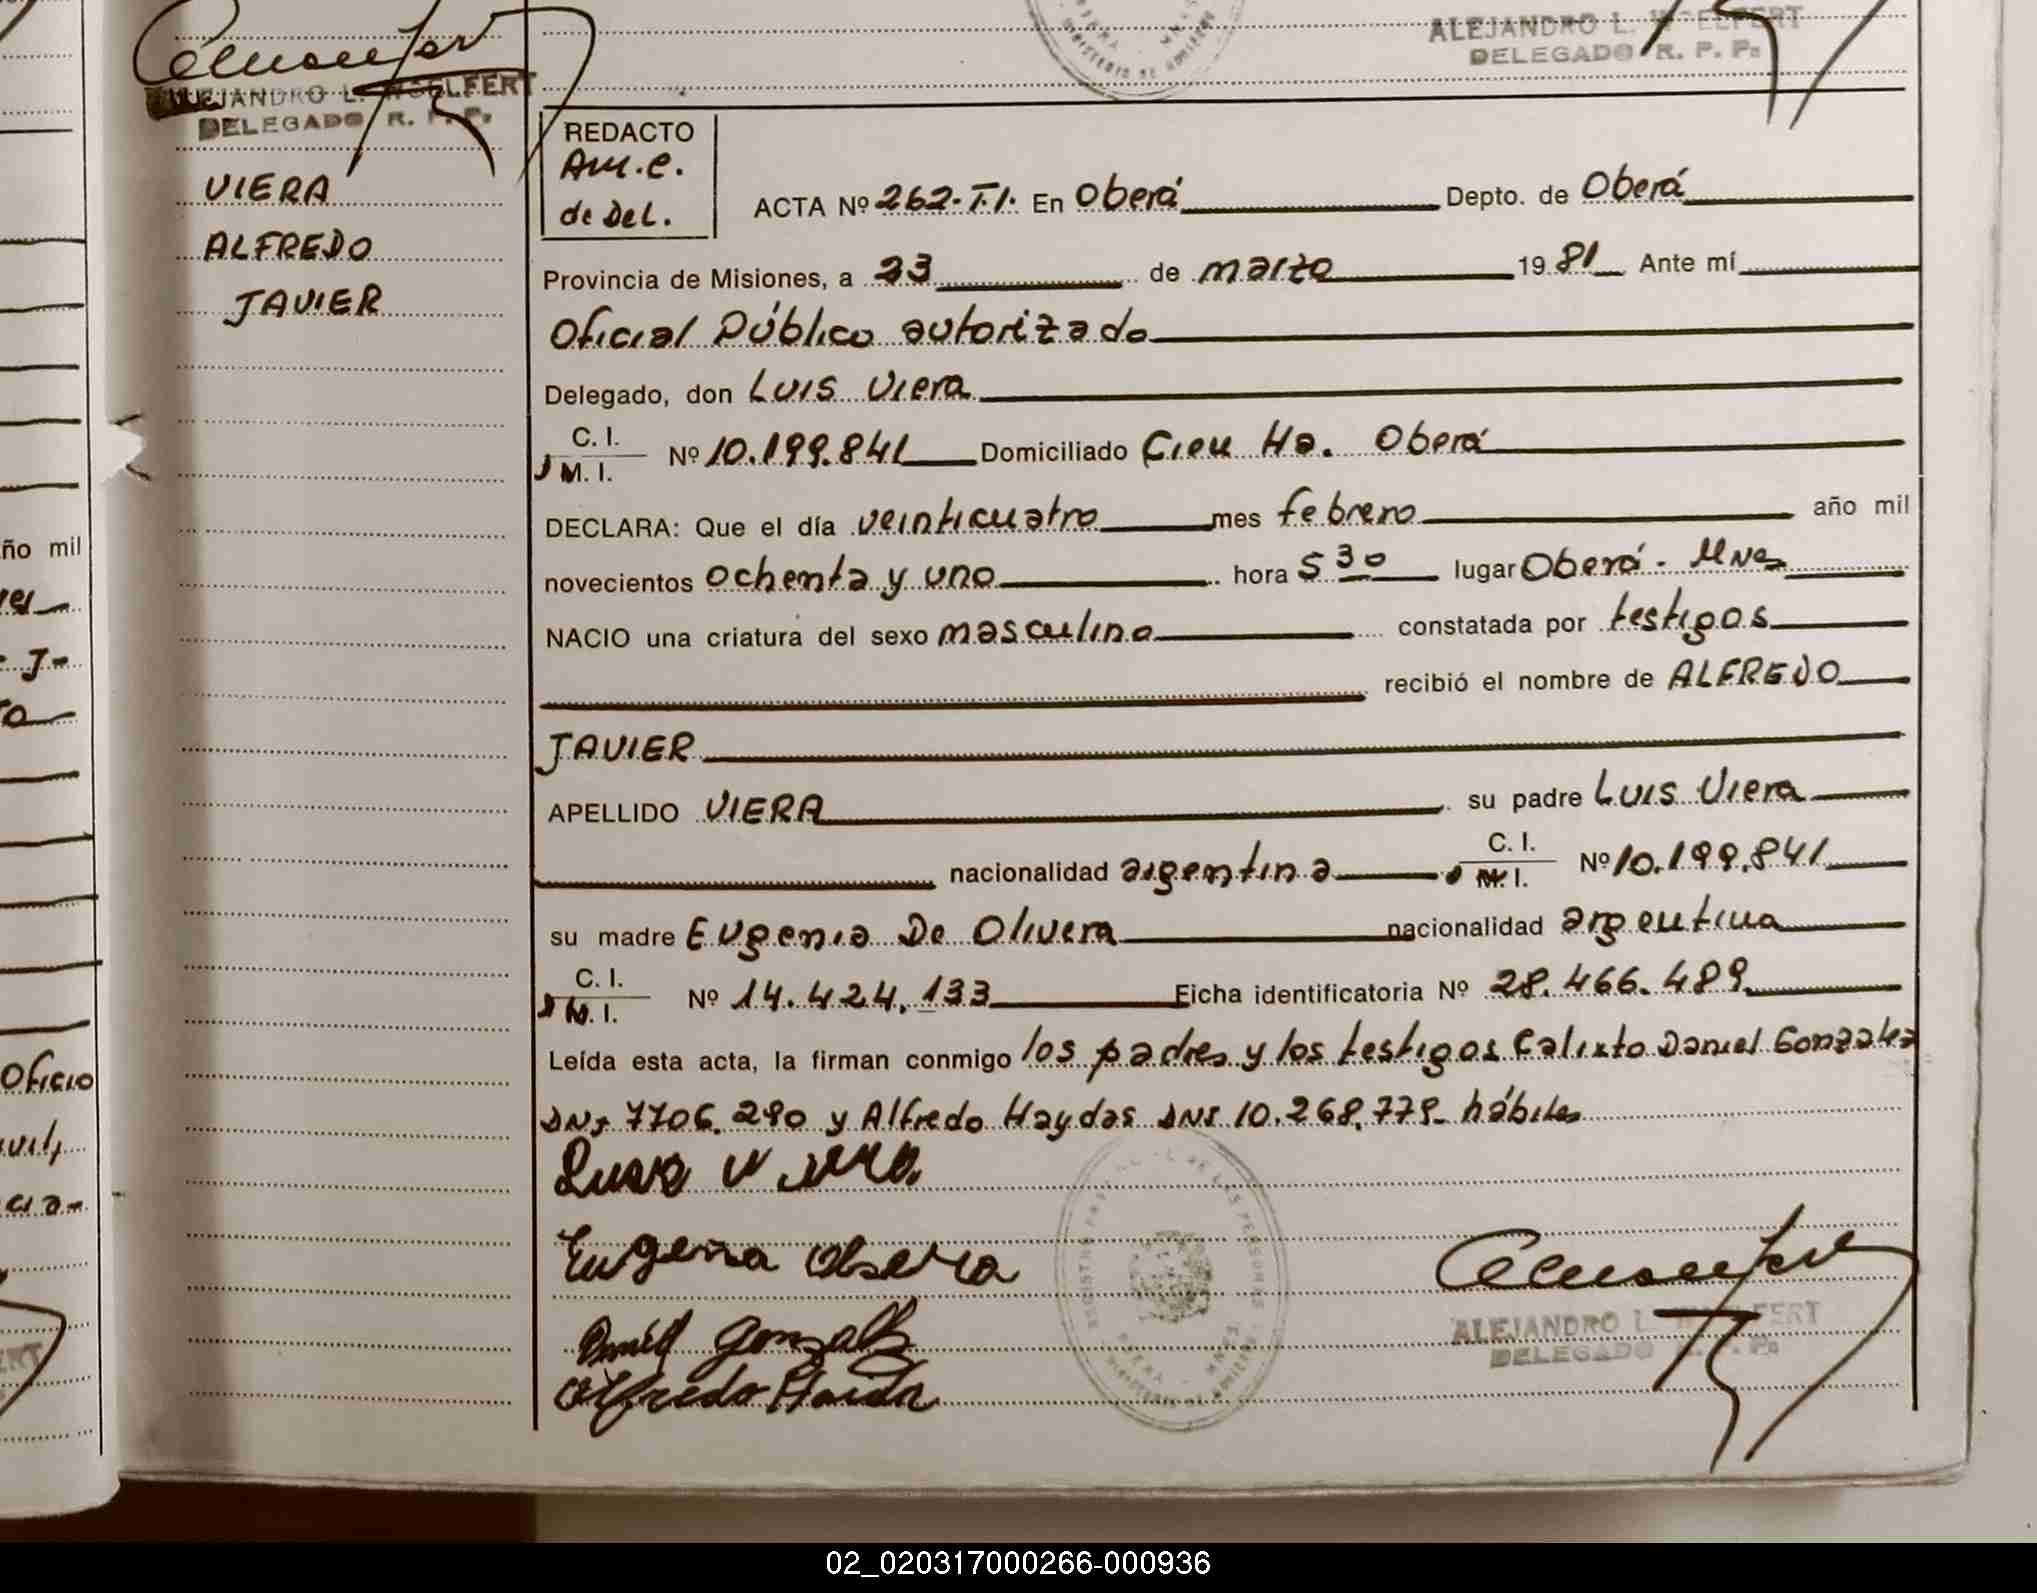 ALEJANDRO L. WOELFERT
DELEGADO R. P. P.
ALEJANDRO L. WOELFERT
DELEGADO R. P. P.
VIERA
ALFREDO
JAVIER
REDACTO
Am.c.
de Del.
ACTA Nº 262-T.I. En Oberá Depto. de Oberá
Provincia de Misiones, a 23 de marzo 1981 Ante mí
Oficial Público autorizado
Delegado, don Luis Viera
C. I.
M. I. Nº 10.199.841 Domiciliado Cien Ha. Oberá
DECLARA: Que el día veinticuatro mes febrero año mil
novecientos ochenta y uno hora 5 30 lugar Oberá - Mnes
NACIO una criatura del sexo masculino constatada por testigos
recibió el nombre de ALFREDO
JAVIER
APELLIDO VIERA su padre Luis Viera
nacionalidad argentina C. I. M. I. Nº 10.199.841
su madre Eugenia De Olivera nacionalidad argentina
C. I.
M. I. Nº 14.424.133 Ficha identificatoria Nº 28.466.489
Leída esta acta, la firman conmigo los padres y los testigos Calixto Daniel Gonzalez
DNI 7706.290 y Alfredo Haydas DNI 10.268.779- hábiles
Eugenia
Alfredo
ALEJANDRO L. WOELFERT
DELEGADO R. P. P.
ño mil
Oficio
02_020317000266-000936